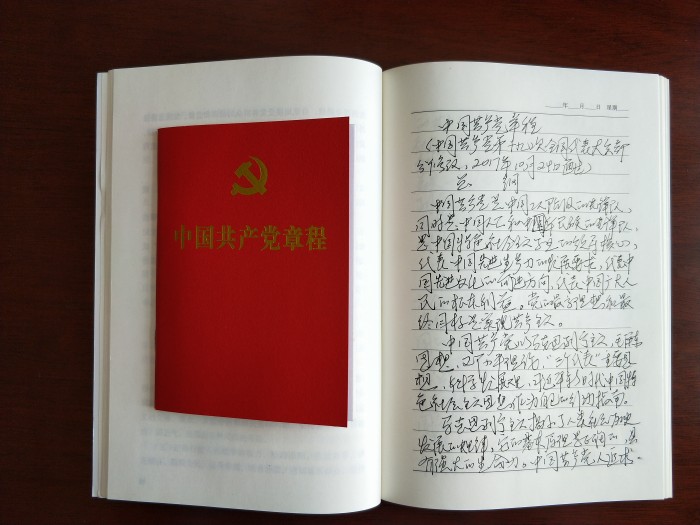 中国共产党章程
年 月 日 星期
中国共产党章程
(中国共产党第十九次全国代表大会部
分修改,2017年10月24日通过)
总 纲
中国共产党是中国工人阶级的先锋队,
同时是中国人民和中华民族的先锋队,
是中国特色社会主义事业的领导核心,
代表中国先进生产力的发展要求,代表中
国先进文化的前进方向,代表中国广大人
民的根本利益。党的最高理想和最
终目标是实现共产主义。
中国共产党以马克思列宁主义、毛泽东
思想、邓小平理论、"三个代表"重要思
想、科学发展观、习近平新时代中国特
色社会主义思想作为自己的行动指南。
马克思列宁主义揭示了人类社会历史
发展的规律,它的基本原理是正确的,具
有强大的生命力。中国共产党人追求